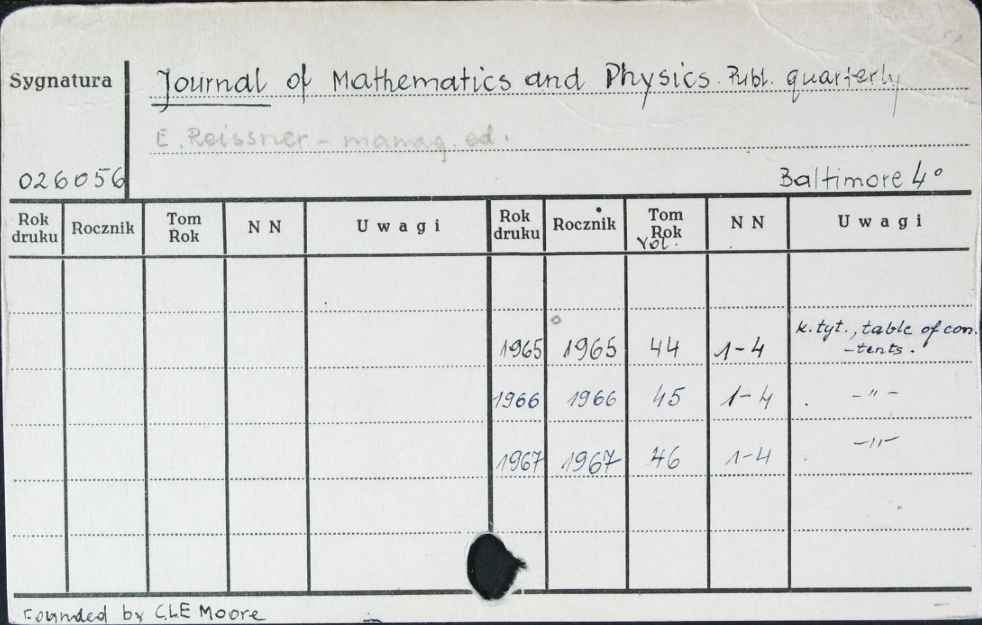 Sygnatura
Journal of Mathematics and Physics. Publ. quarterly
E. Reissner - manag. ed.
026056
Baltimore 4°
Rok druku Rocznik Tom Rok NN Uwagi Rok druku Rocznik Tom Rok Vol. NN Uwagi
1965 1965 44 1-4 k. tyt., table of con-
-tents.
1966 1966 45 1-4 -"-
1967 1967 46 1-4 -"-
Founded by C.L.E Moore